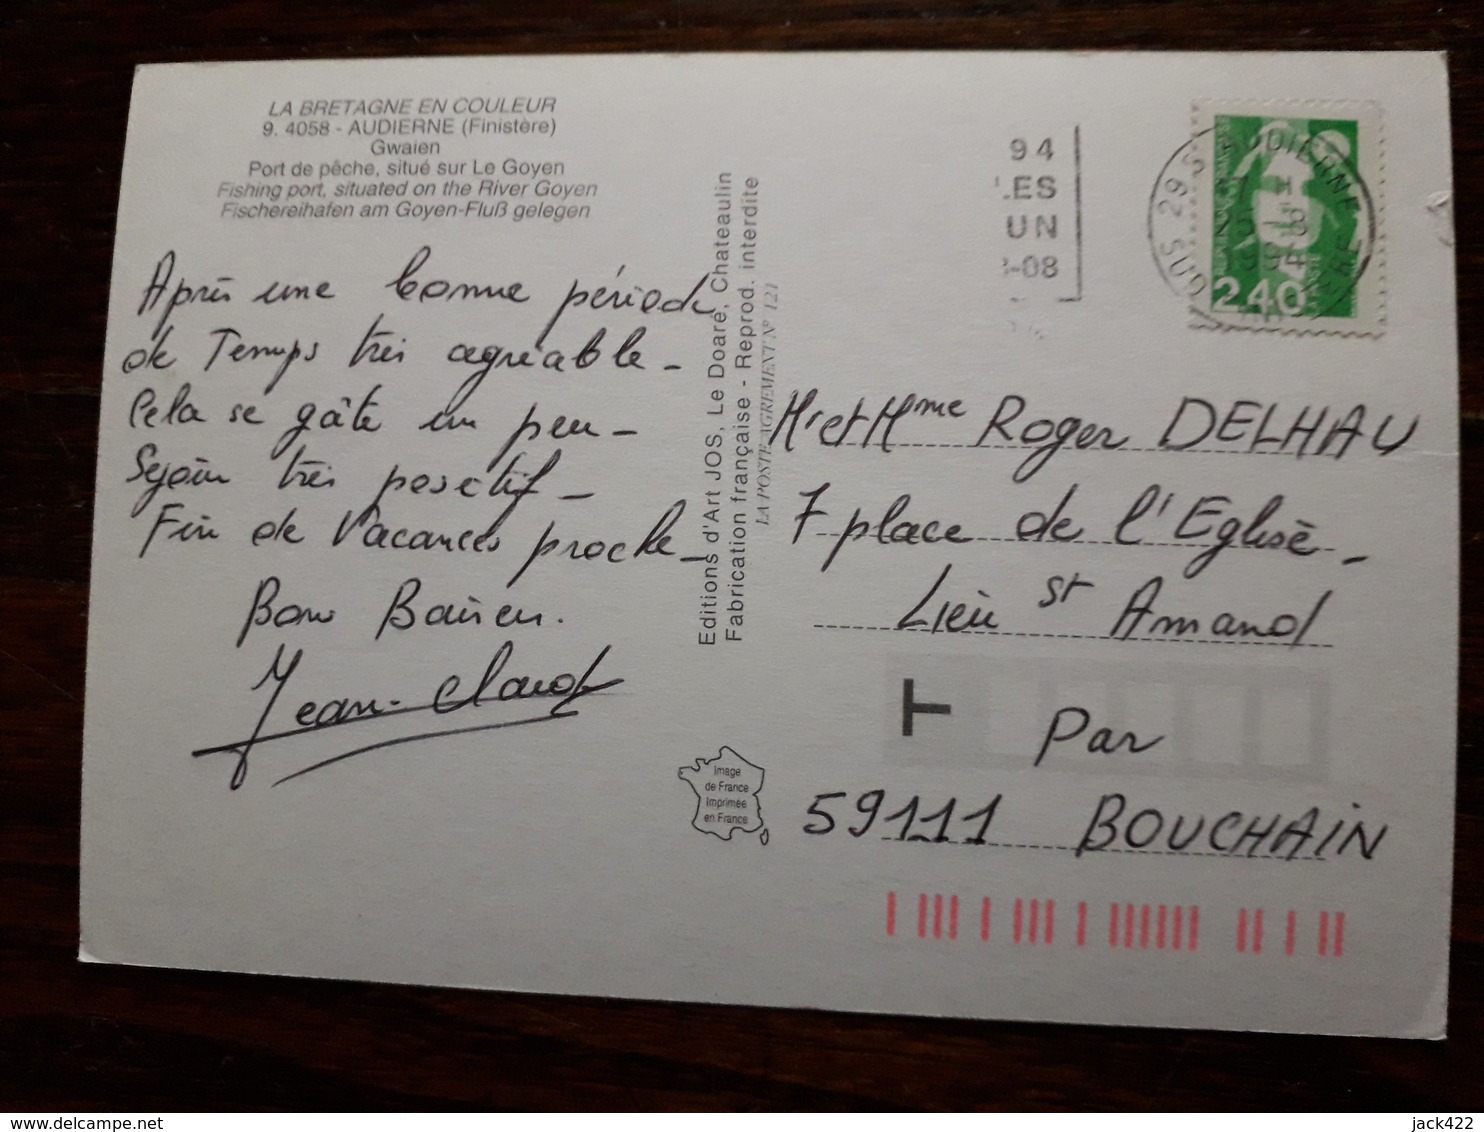 LA BRETAGNE EN COULEUR
9. 4058 - AUDIERNE (Finistère)
Gwaien
Port de pêche, situé sur Le Goyen
Fishing port, situated on the River Goyen
Fischereihafen am Goyen-Fluß gelegen
Après une bonne période
de Temps très agréable -
Cela se gâte un peu -
Séjour très positif -
Fin de Vacances proche -
Bons Baisers.
Jean-Claude
Editions d'Art JOS, Le Doaré, Chateaulin
Fabrication française - Reprod. interdite
LA POSTE AGREMENT N° 121
Image
de France
Imprimée
en France
94
LES
UN
-08
29 S AUDIERNE
2,40
Mr et Mme Roger DELHAU
7 place de l'Eglise -
Lieu St Amand
T
Par
59111 BOUCHAIN
jack422